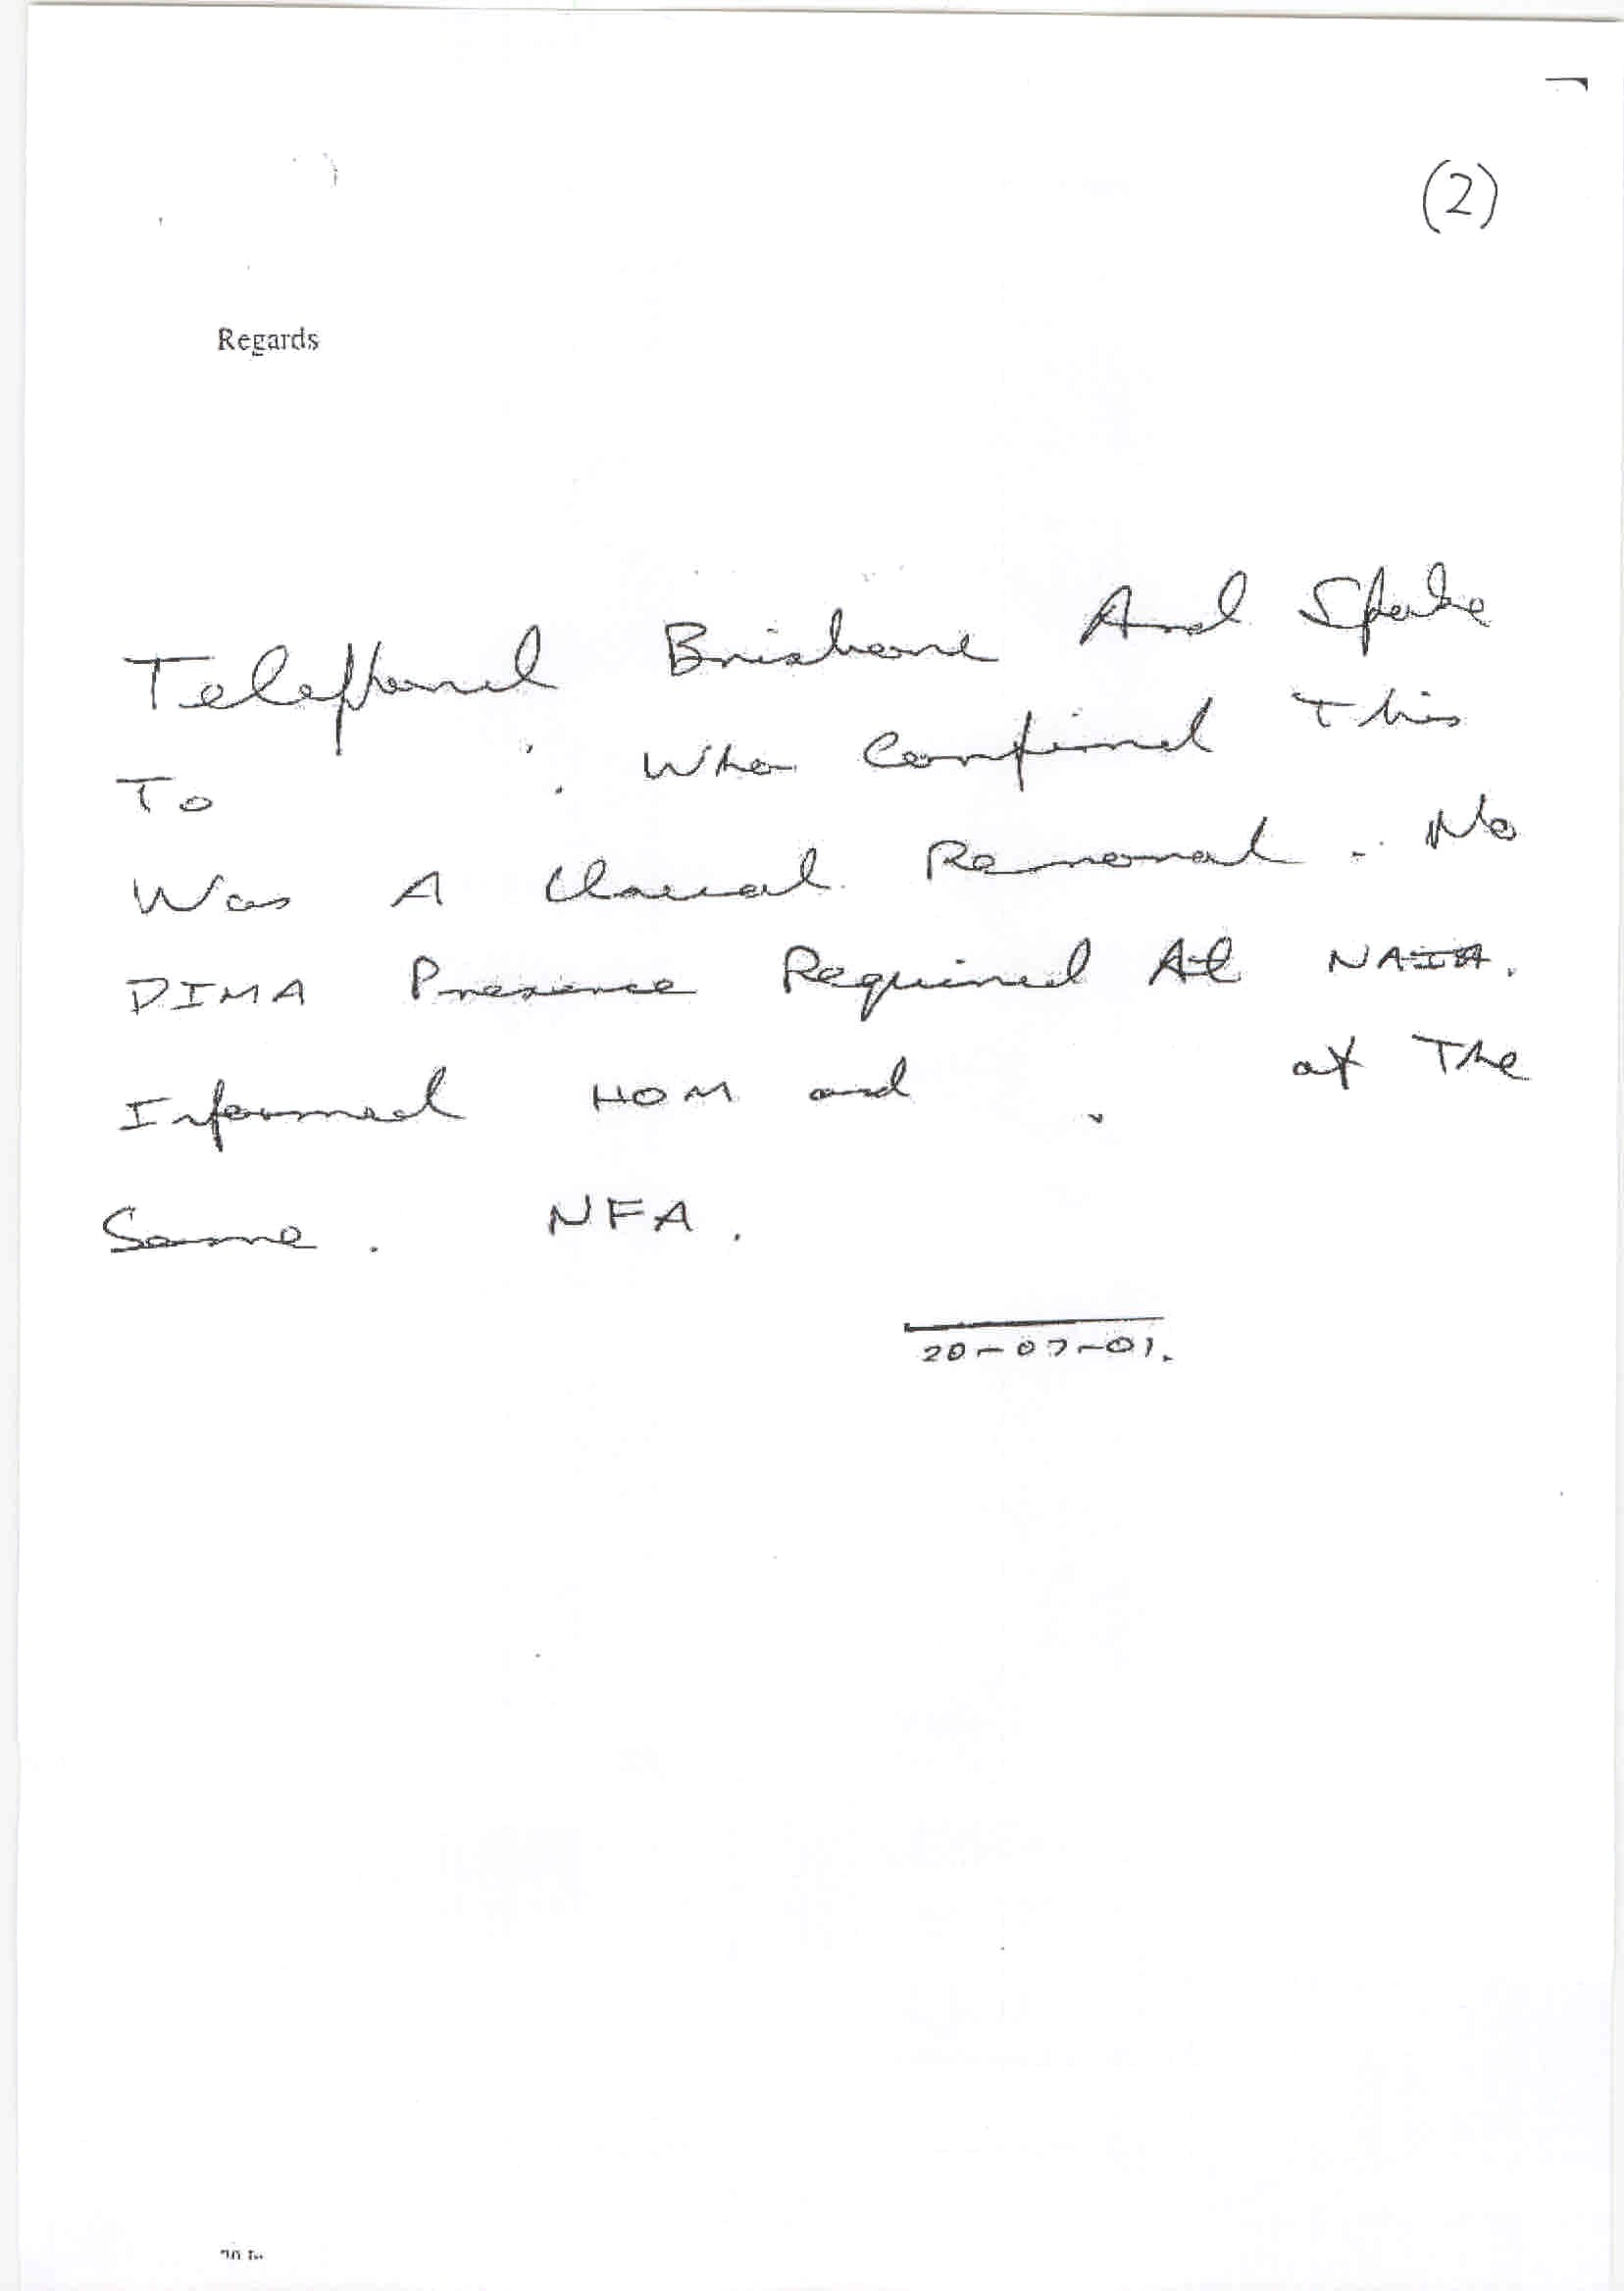 (2)
Regards
Telephoned Brisbane And Spoke
To Who Confirmed This
Was A Removal. No
DIMA Presence Required At NAIA.
Informed HOM and at The
Same. NFA.
20-07-01.